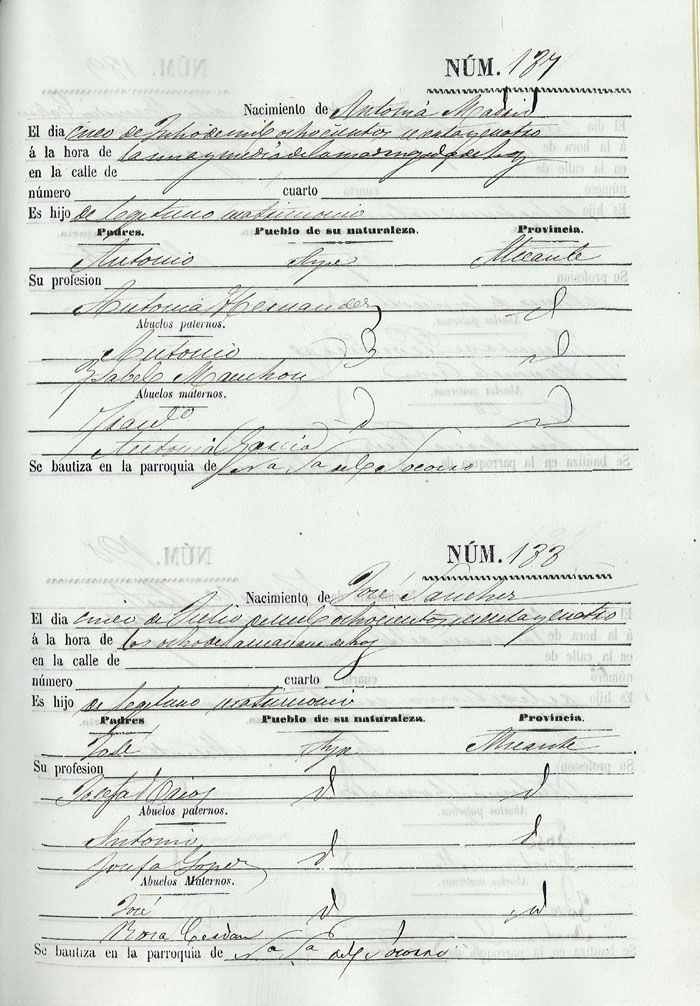 NÚM. 137
Nacimiento de Antonia Madrid
El dia cinco de Julio de mil ochocientos
á la hora de la una y media de la
en la calle de
número cuarto
Es hijo de legitimo matrimonio
Padres. Pueblo de su naturaleza. Provincia.
Antonio Aspe Alicante
Su profesion
Antonia Hernandez id
Abuelos paternos.
Antonio id
Isabel Manchon
Abuelos maternos.
id id
Antonia Garcia
Se bautiza en la parroquia de Na Sa del Socorro
NÚM. 133
Nacimiento de José Sanchez
El dia cinco de Julio de mil ochocientos
á la hora de las ocho de la mañana de hoy
en la calle de
número cuarto
Es hijo de legitimo matrimonio
Padres Pueblo de su naturaleza. Provincia.
José Aspe Alicante
Su profesion
Josefa id id
Abuelos paternos.
Antonio id
Josefa Lopez id
Abuelos Maternos.
José id id
Rosa Cerdan
Se bautiza en la parroquia de Na Sa del Socorro